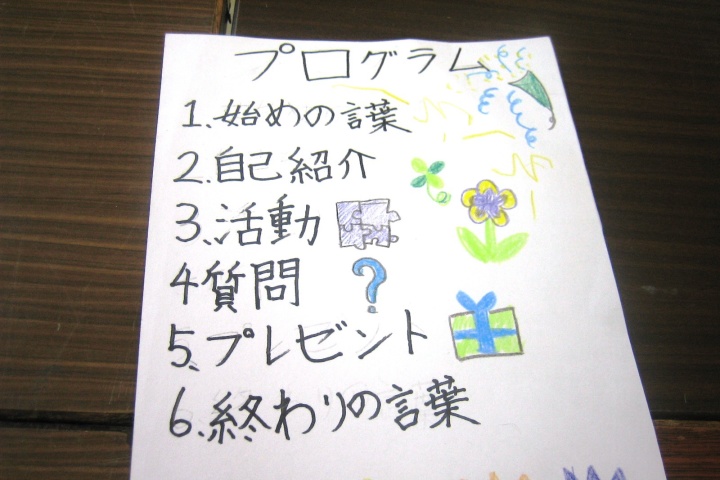 プログラム
1.始めの言葉
2.自己紹介
3.活動
4質問
?
5.プレゼント
6.終わりの言葉